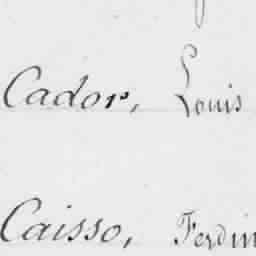 Cador, Louis
Caisso, Ferdin